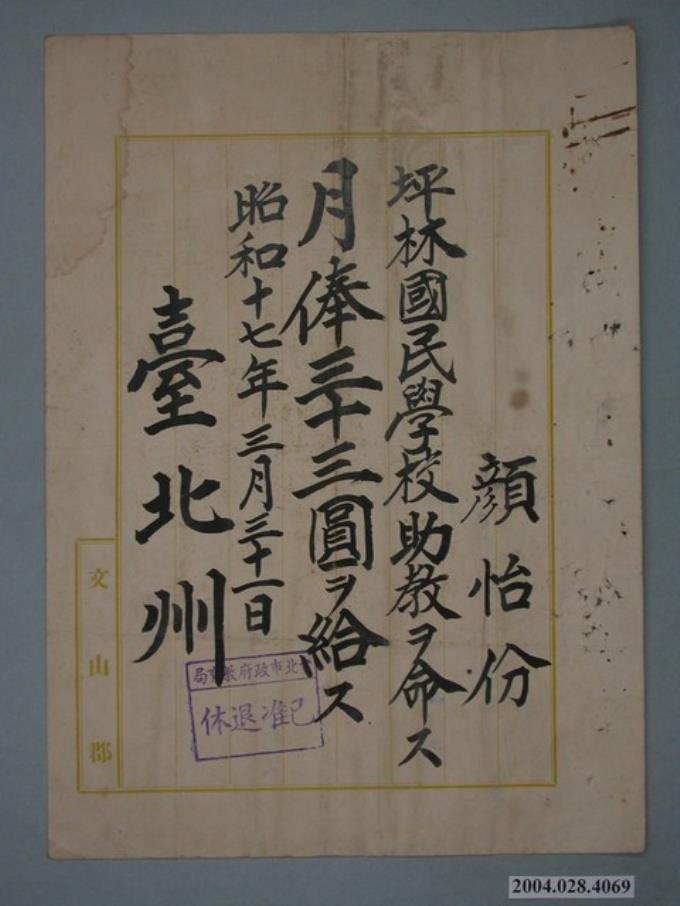 顏怡份
坪林國民學校助教ヲ命ス
月俸三十三圓ヲ給ス
昭和十七年三月三十一日
臺北州
文山郡
北市政府教育局
已准退休
2004.028.4069